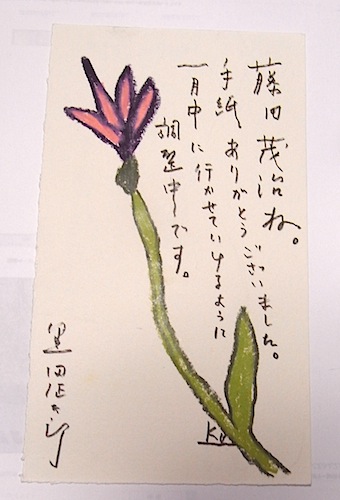 藤田茂治様。
手紙、ありがとうございました。
一月中に行かせていけるように
調整中です。
黒田征太郎
Ku